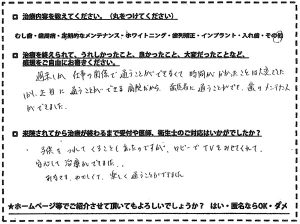 □ 治療内容を教えてください。（丸をつけてください）
むし歯・歯周病・定期的なメンテナンス・ホワイトニング・歯列矯正・インプラント・入れ歯・その他
□ 治療を終えられて、うれしかったこと、良かったこと、大変だったことなど、
感想をご自由にお書きください。
仕事の関係で通うことができなくて時間がかかったことは大変でした
が、土日に通うことができる病院だから、
ができました。
□ 来院されてから治療が終わるまで受付や医師、衛生士のご対応はいかがでしたか？
子供をつれてくることもあったのですが、ロビーでTVをみせてくれて、
安心して治療ができました。
楽しく通うことができました
★ホームページ等でご紹介させて頂いてもよろしいでしょうか？ はい・匿名ならOK・ダメ